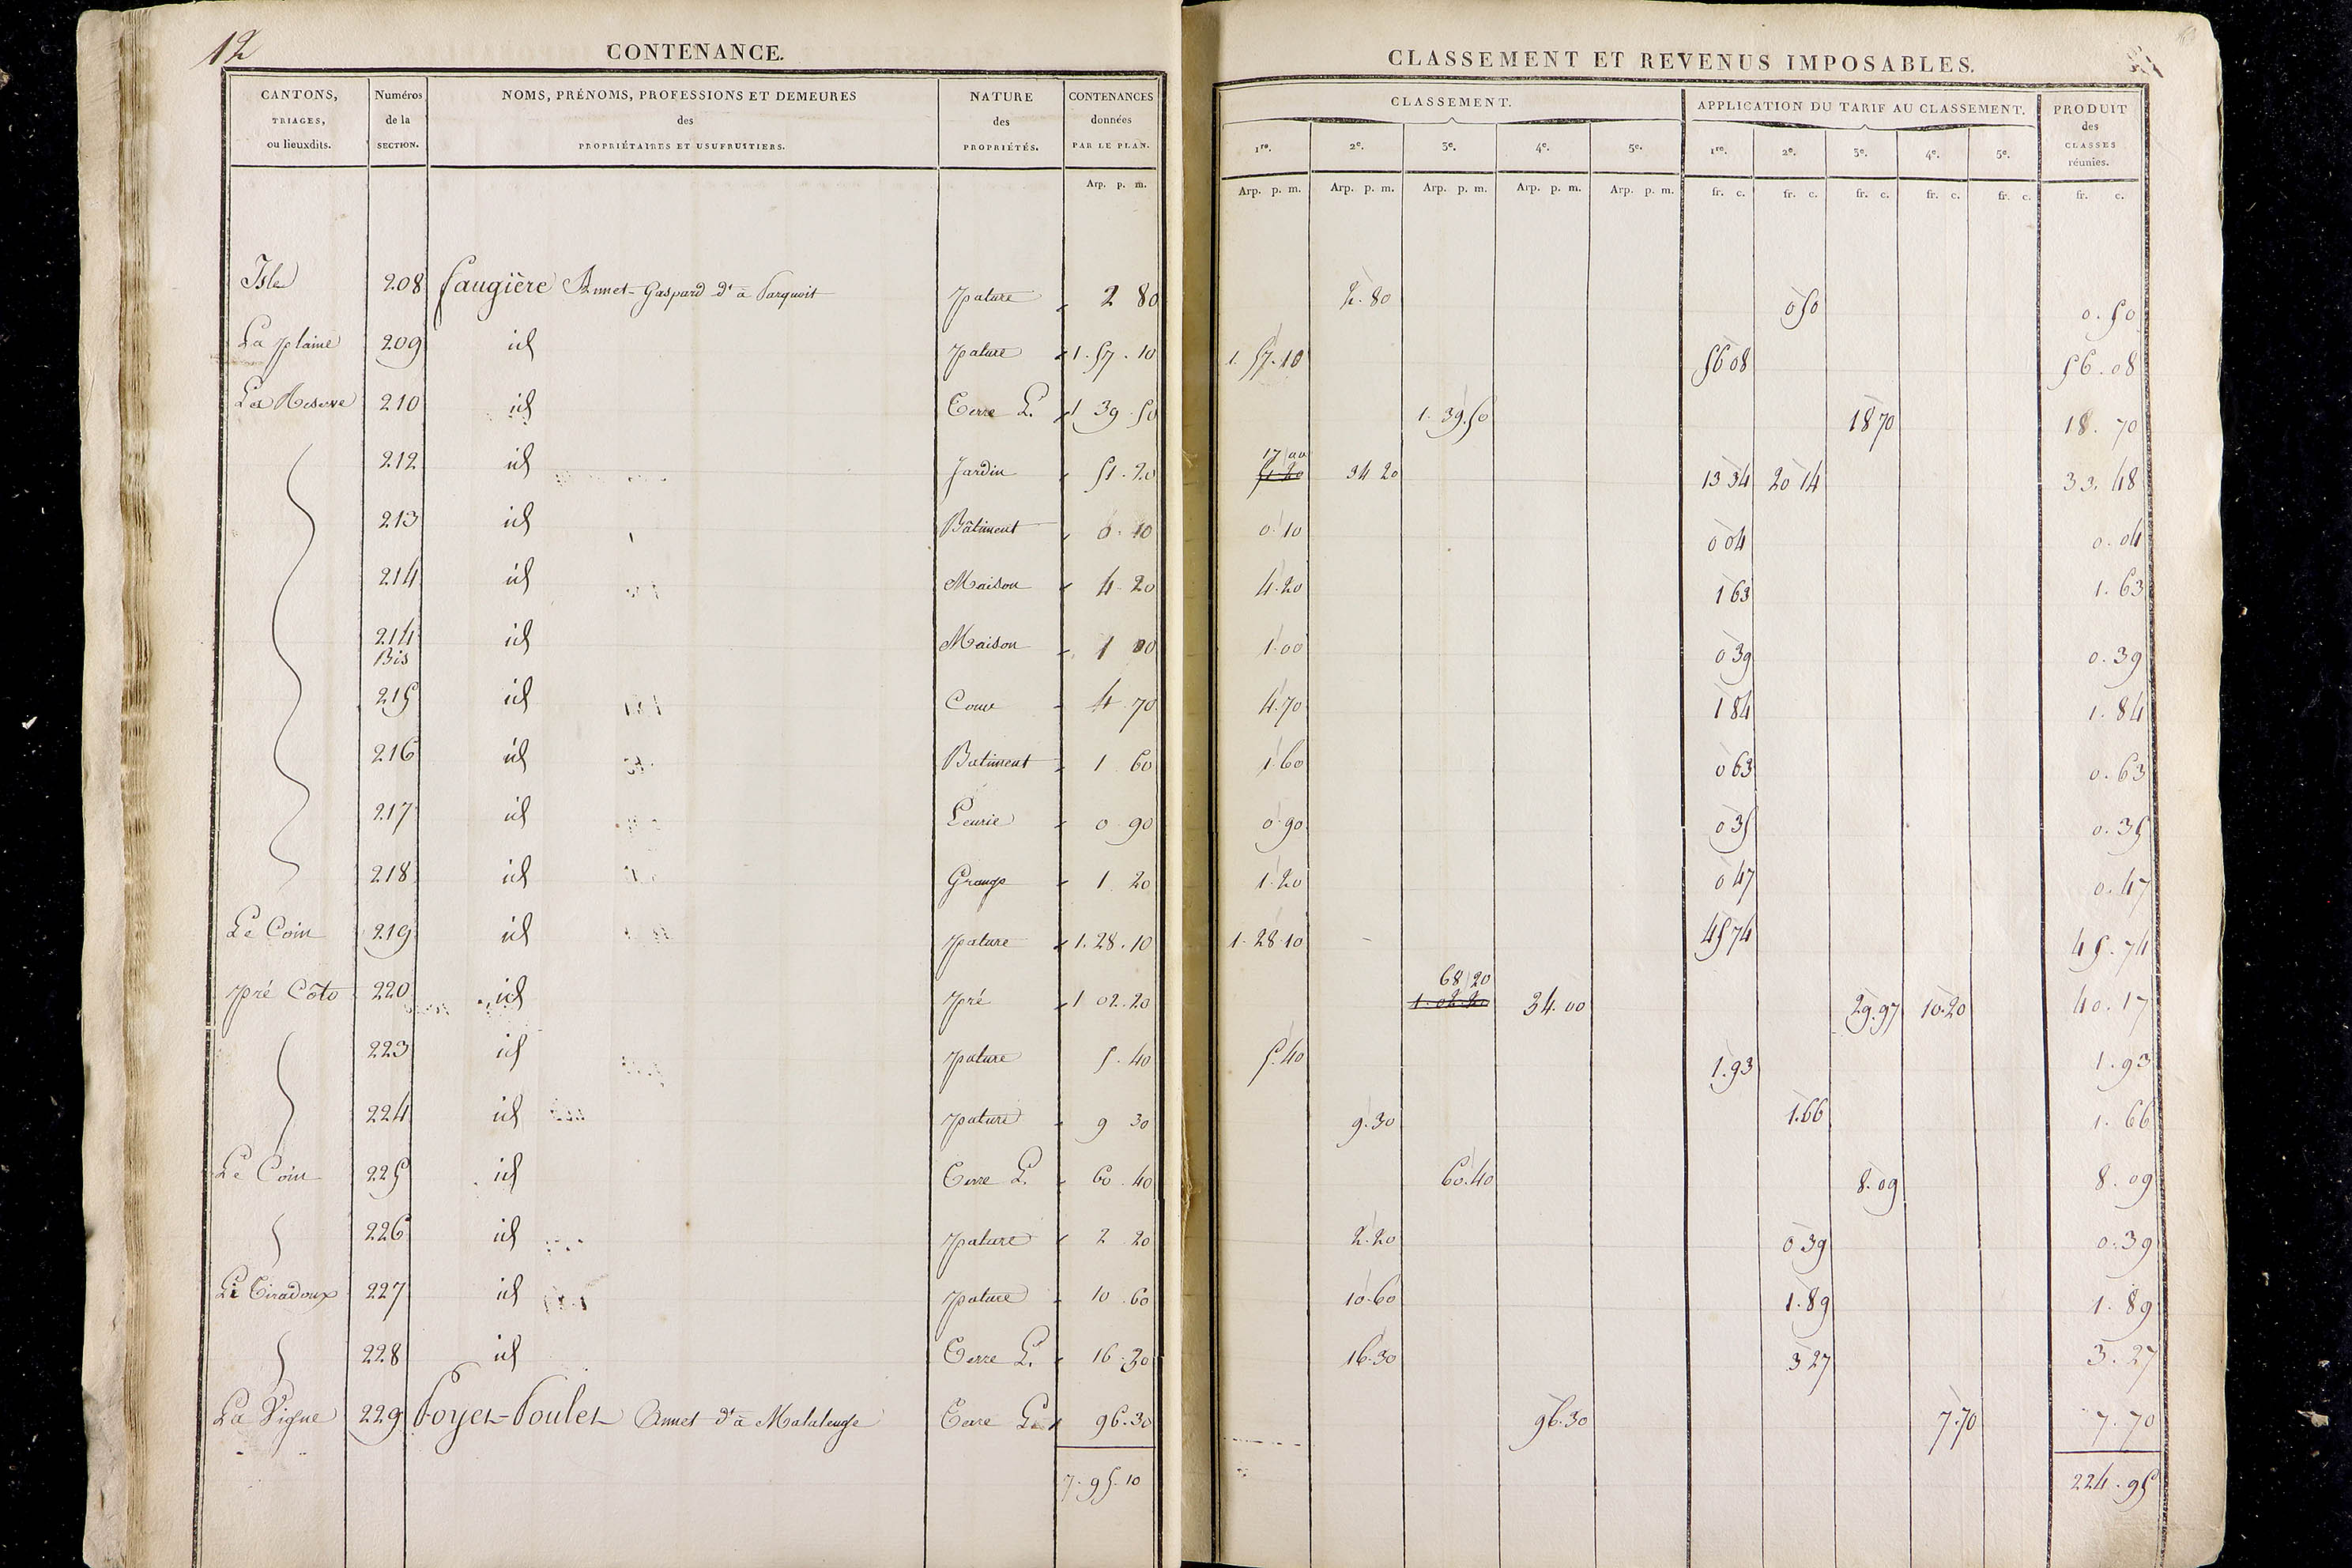 12
CONTENANCE.
CANTONS, TRIAGES, ou lieuxdits.
Numéros de la SECTION.
NOMS, PRÉNOMS, PROFESSIONS ET DEMEURES des PROPRIÉTAIRES ET USUFRUITIERS.
NATURE des PROPRIÉTÉS.
CONTENANCES données PAR LE PLAN.
Arp. p. m.
CLASSEMENT ET REVENUS IMPOSABLES.
CLASSEMENT.
APPLICATION DU TARIF AU CLASSEMENT.
PRODUIT des CLASSES réunies.
1re. 2e. 3e. 4e. 5e. 1re. 2e. 3e. 4e. 5e.
Arp. p. m. Arp. p. m. Arp. p. m. Arp. p. m. Arp. p. m. fr. c. fr. c. fr. c. fr. c. fr. c. fr. c.
Isle 208 Faugière Annet-Gaspard dt à pature 2 80 2.80 0 50 0.50
La plaine 209 id pature 1.57.10 1.57.10 56 08 56.08
La Réserve 210 id Terre L. 1 39.50 1.39.50 18 70 18.70
212 id Jardin 51.20 17 00 51 20 34 20 13 34 20 14 33.48
213 id Bâtiment 0.10 0.10 0 04 0.04
214 id Maison 4.20 4.20 1 63 1.63
214 Bis id Maison 1 00 1.00 0 39 0.39
215 id Cour 4.70 4.70 1 84 1.84
216 id Batiment 1.60 1.60 0 63 0.63
217 id 0 90 0.90 0 35 0.35
218 id Grange 1.20 1.20 0 47 0.47
Le Coin 219 id pature 1.28.10 1.28.10 45 74 45.74
pré Côto 220 id pré 1 02.20 68 20 1.02.20 34.00 29.97 10.20 40.17
223 id pature 5.40 5.40 1.93 1.93
224 id pature 9 30 9.30 1.66 1.66
Le Coin 225 id Terre L. 60.40 60.40 8.09 8.09
226 id pature 2 20 2.20 0 39 0.39
Le Tiradoux 227 id pature 10.60 10.60 1.89 1.89
228 id Terre L. 16.30 16.30 3 27 3.27
La Vigne 229 Annet dt à Terre L. 96.30 96.30 7.70 7.70
7.95.10 224.95